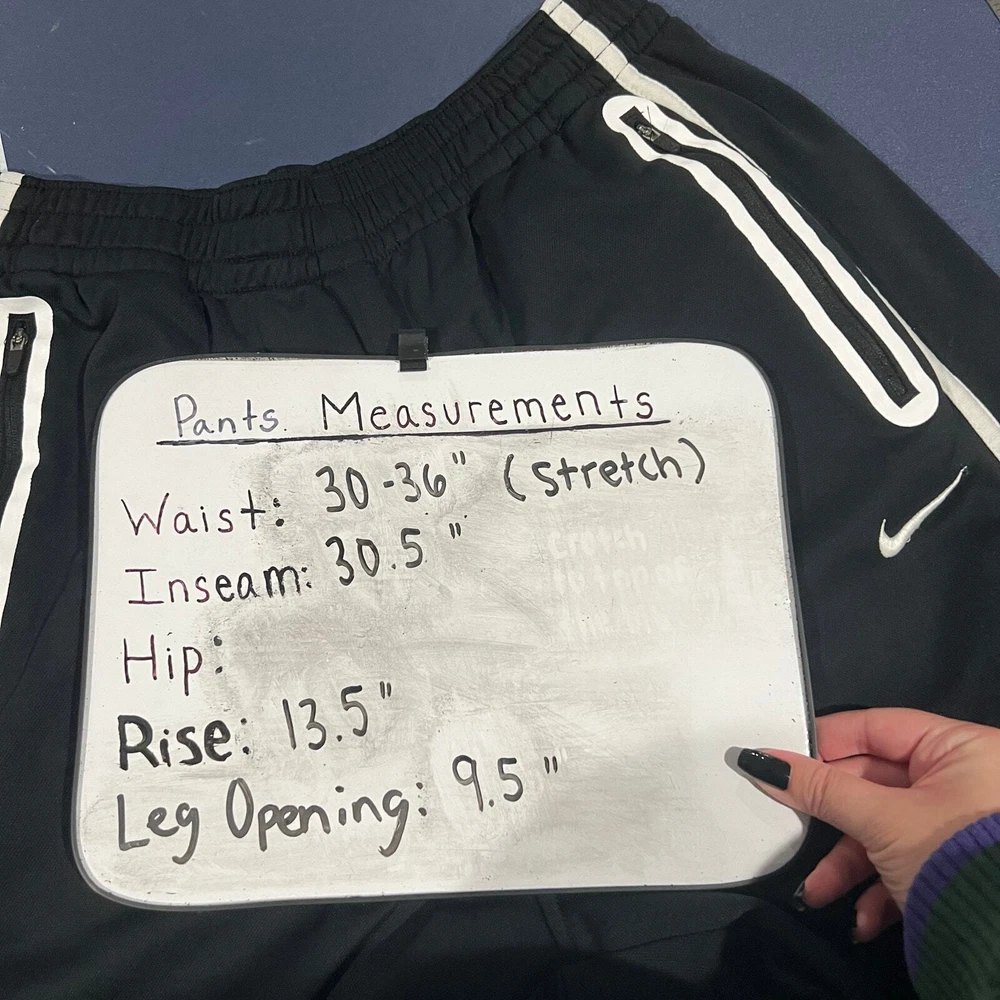 Pants Measurements
Waist: 30-36" (stretch)
Inseam: 30.5"
Hip:
Rise: 13.5"
Leg Opening: 9.5"